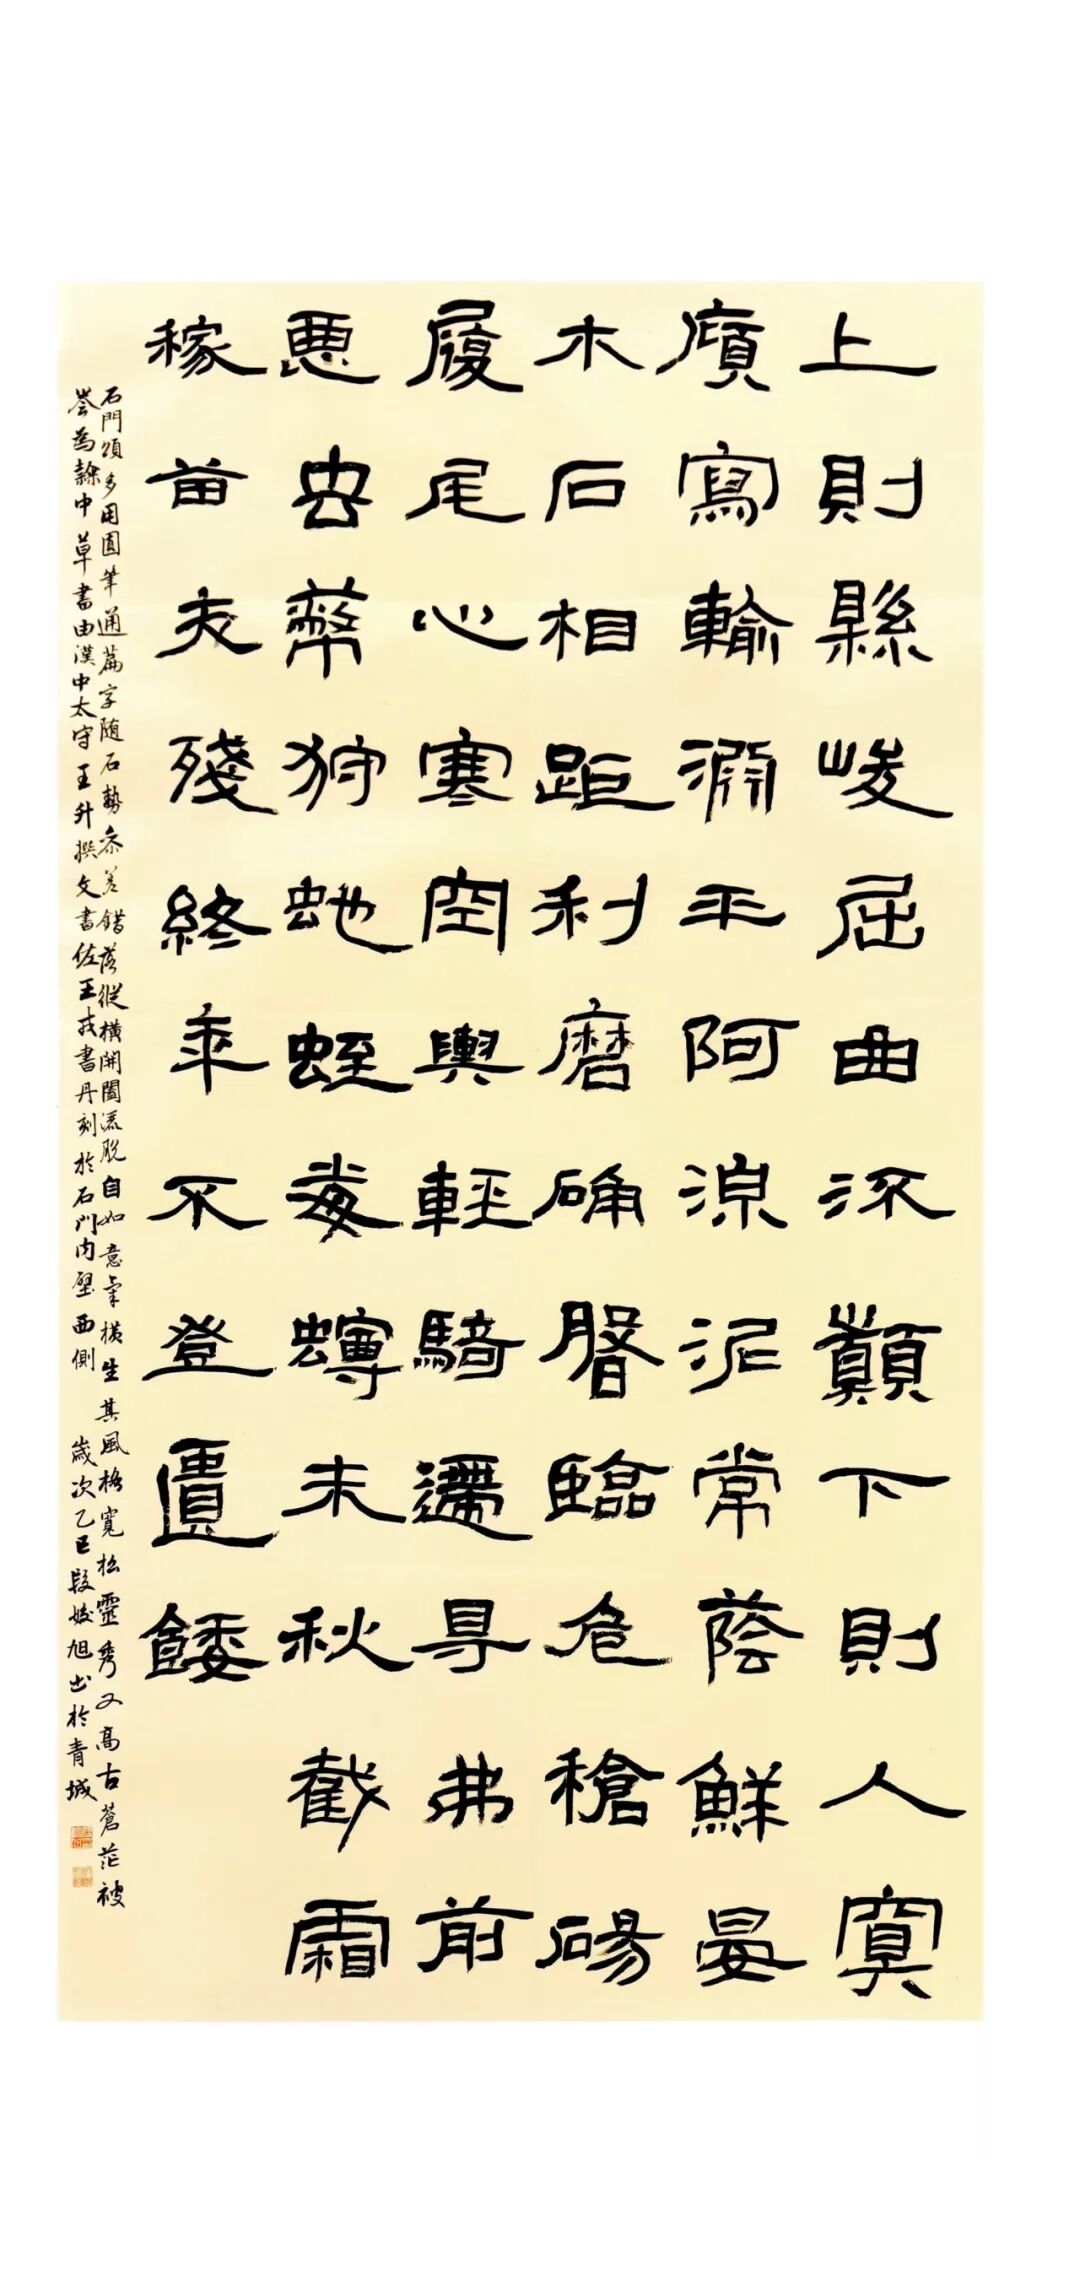 上則縣峻屈曲流顛下則人寞
廎寫輸淵平阿淙泥常蔭鮮晏
木石相距利磨确臋臨危槍碭
履尾心寒空輿輕騎遰㝵弗前
惡虫𧀲狩虵蛭毒蟃未秋截霜
稼苗夭殘終年不登匱餧
石門頌多用圓筆通篇字随石勢參差錯落縱橫開闔洒脫自如意氣橫生其風格寬松靈秀又高古蒼茫被
誉為隸中草書由漢中太守王升撰文書佐王戎書丹刻於石門内壁西側 歲次乙巳段姣旭书於青城